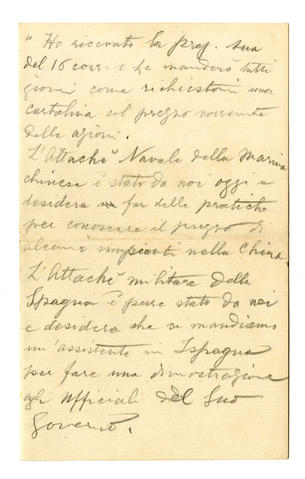 " Ho ricevuto la preg. sua
del 16 corr. e Le manderò tutti
giorni come richiestomi una
cartolina col prezzo corrente
delle azioni.
L'Attachè Navale della Marina
chinese è stato da noi oggi e
desidera far delle pratiche
per conoscere il prezzo di
alcuni impianti nella China
L'Attachè militare della
Spagna è pure stato da noi
e desidera che si mandiamo
un'assistente in Ispagna
per fare una dimostrazione
agli ufficiali del Suo
Governo.